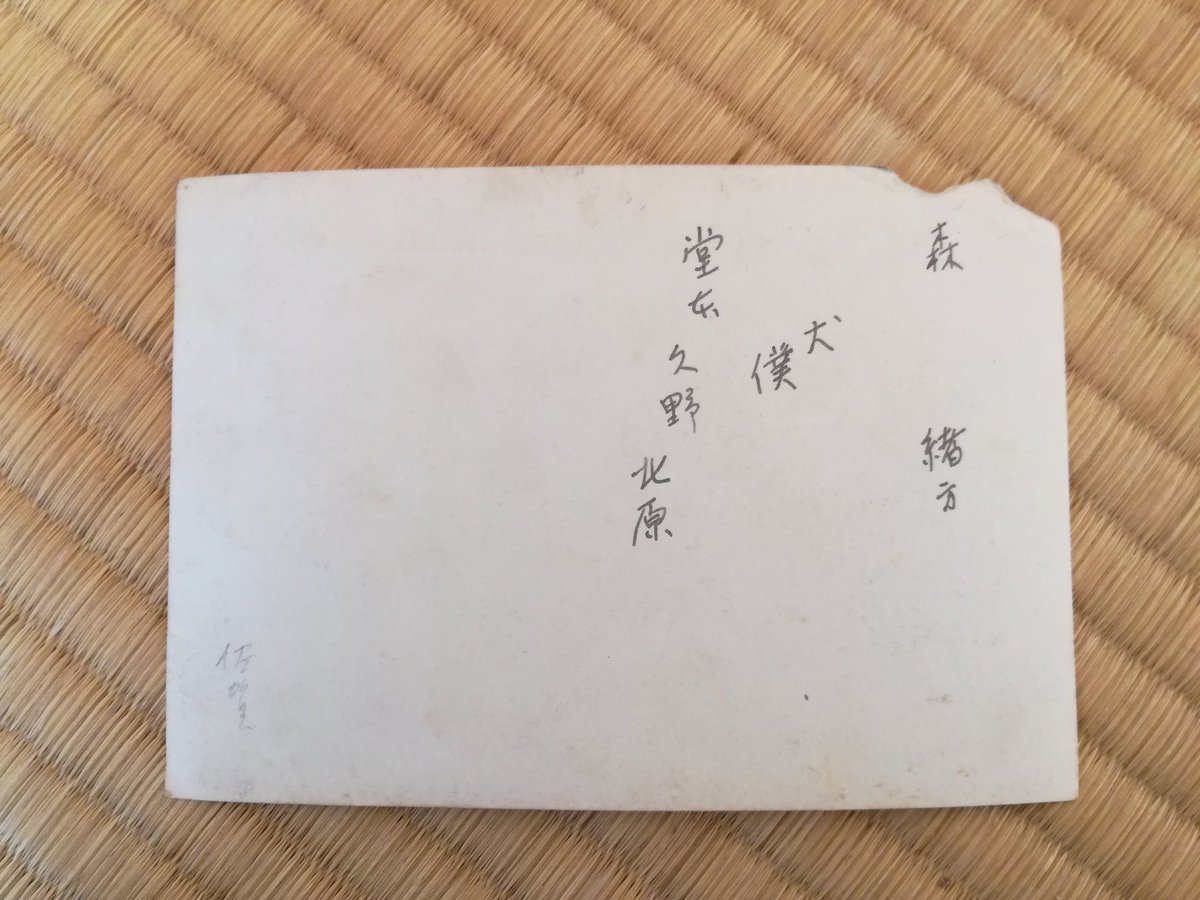 森 緒方
犬
僕
堂本 久野 北原
佐賀